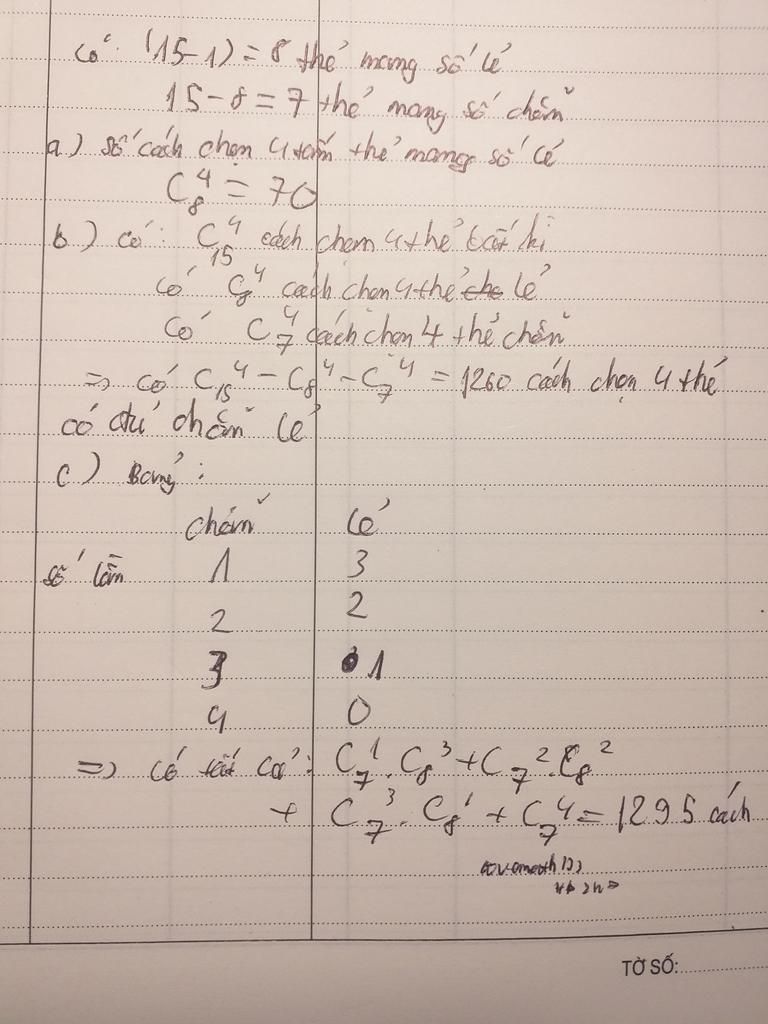 Có: (15-1) = 8 thẻ mang số lẻ
15-8=7 thẻ mang số chẵn
a) số cách chọn 4 tấm thẻ mang số lẻ
C₈⁴ = 70
b) có: C₁₅⁴ cách chọn 4 thẻ bất kì
có C₈⁴ cách chọn 4 thẻ lẻ
có C₇⁴ cách chọn 4 thẻ chẵn
=> có C₁₅⁴ - C₈⁴ - C₇⁴ = 1260 cách chọn 4 thẻ
có đủ chẵn lẻ
c) Bảng:
chẵn lẻ
số lần 1 3
2 2
3 1
4 0
=> có tất cả: C₇¹.C₈³ + C₇².C₈²
+ C₇³.C₈¹ + C₇⁴ = 1295 cách
TỜ SỐ: